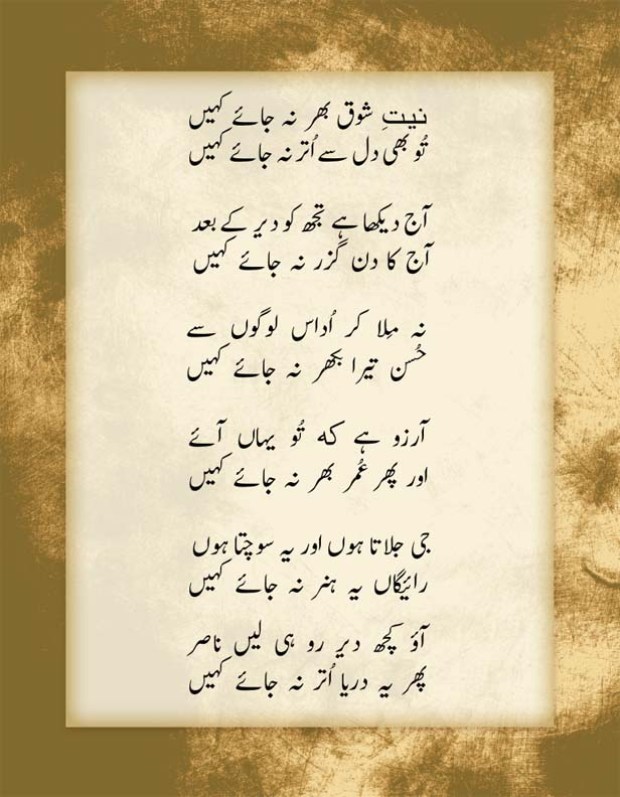 نیتِ شوق بھر نہ جائے کہیں
تُو بھی دل سے اُتر نہ جائے کہیں
آج دیکھا ہے تجھ کو دیر کے بعد
آج کا دن گزر نہ جائے کہیں
نہ مِلا کر اُداس لوگوں سے
حُسن تیرا بکھر نہ جائے کہیں
آرزو ہے کہ تُو یہاں آئے
اور پھر عُمر بھر نہ جائے کہیں
جی جلاتا ہوں اور یہ سوچتا ہوں
رائیگاں یہ ہنر نہ جائے کہیں
آؤ کچھ دیر رو ہی لیں ناصر
پھر یہ دریا اُتر نہ جائے کہیں